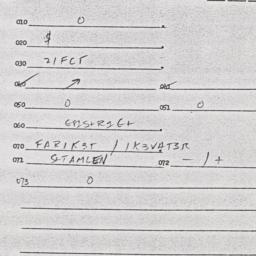 010 0
020 $
030 21FCT
040 ↗ 041
050 0 051 0
060
070 FARIK3T / IK3VAT3R
071 STAMLEN 072 - / +
073 0